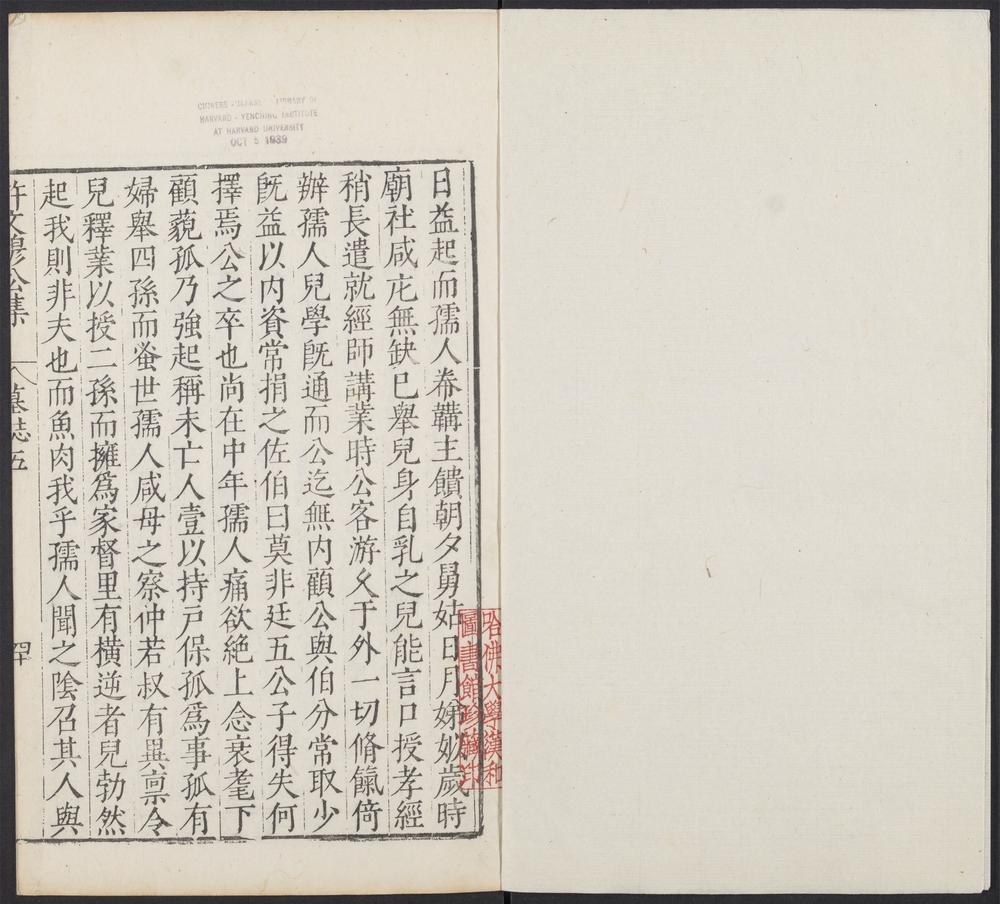 CHINESE - JAPANESE LIBRARY OF
HARVARD - YENCHING INSTITUTE
AT HARVARD UNIVERSITY
OCT 5 1939
日益起而孺人帣鞲主饋朝夕舅姑日月娣姒歲時
廟社咸庀無缺已舉兒身自乳之兒能言口授孝經
稍長遣就經師講業時公客游久于外一切脩餼倚
辦孺人兒學旣通而公迄無内顧公與伯分常取少
旣益以内資常捐之佐伯曰莫非廷五公子得失何
擇焉公之卒也尚在中年孺人痛欲絶上念衰耄下
顧藐孤乃強起稱未亡人壹以持戶保孤爲事孤有
婦舉四孫而蚤世孺人咸母之察仲若叔有異禀令
兒釋業以授二孫而擁爲家督里有橫逆者兒勃然
起我則非夫也而魚肉我乎孺人聞之陰召其人與
許文穆公集
墓誌五
哈佛大學漢和
圖書館珍藏印